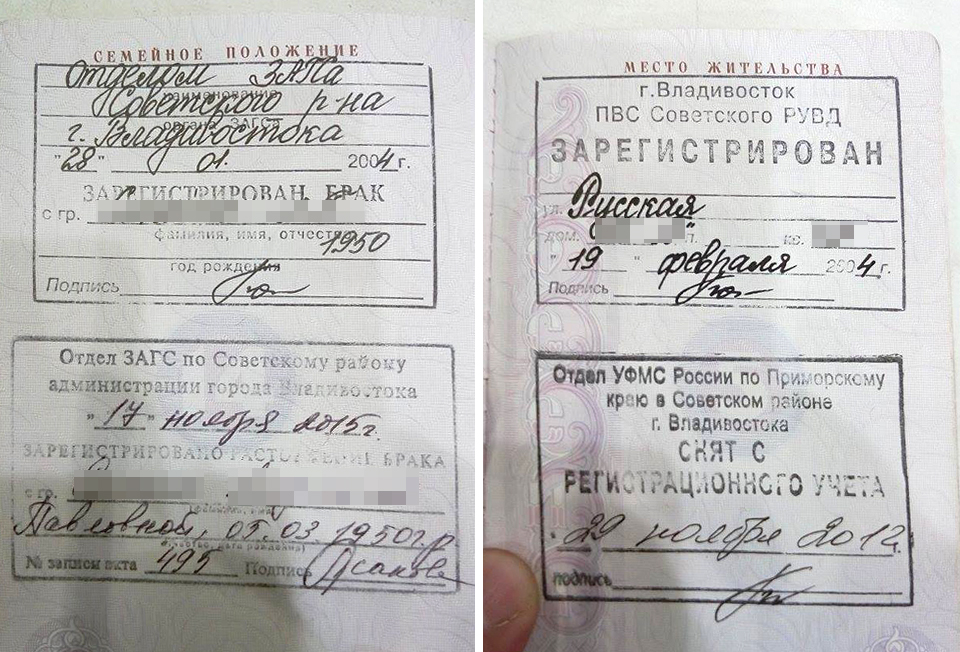 СЕМЕЙНОЕ ПОЛОЖЕНИЕ
Отделом ЗАГСа
наименование
Советского р-на
органа ЗАГСа
г. Владивостока
"28" 01. 2004 г.
ЗАРЕГИСТРИРОВАН БРАК
с гр.
фамилия, имя, отчество
1950
год рождения
Подпись
Отдел ЗАГС по Советскому району
администрации города Владивостока
"17" ноября 2015г.
ЗАРЕГИСТРИРОВАНО РАСТОРЖЕНИЕ БРАКА
с гр.
Павловной, 05.03.1950г.р
№ записи акта 495 Подпись
МЕСТО ЖИТЕЛЬСТВА
г.Владивосток
ПВС Советского РУВД
ЗАРЕГИСТРИРОВАН
ул. Русская
дом. кв.
"19" февраля 2004 г.
Подпись
Отдел УФМС России по Приморскому
краю в Советском районе
г. Владивостока
СНЯТ С
РЕГИСТРАЦИОННОГО УЧЕТА
29 ноября 2012.
подпись